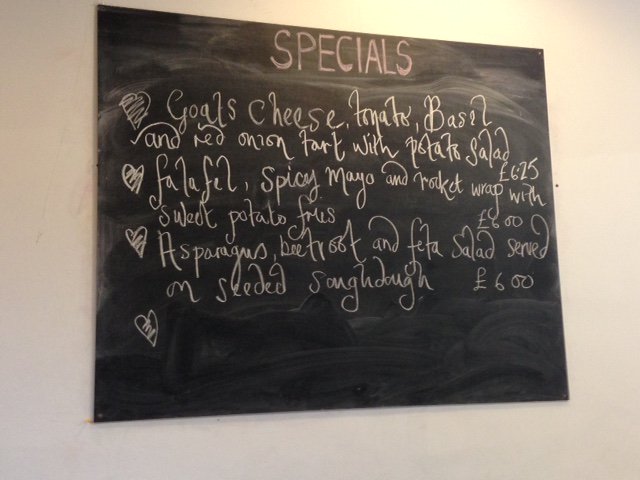 SPECIALS
Goats Cheese, tomato, Basil
and red onion tart with potato Salad
£6.25
falafel, Spicy Mayo and rocket wrap with
Sweet potato fries £6.00
Asparagus, beetroot and feta Salad served
on seeded Soughdough £6.00